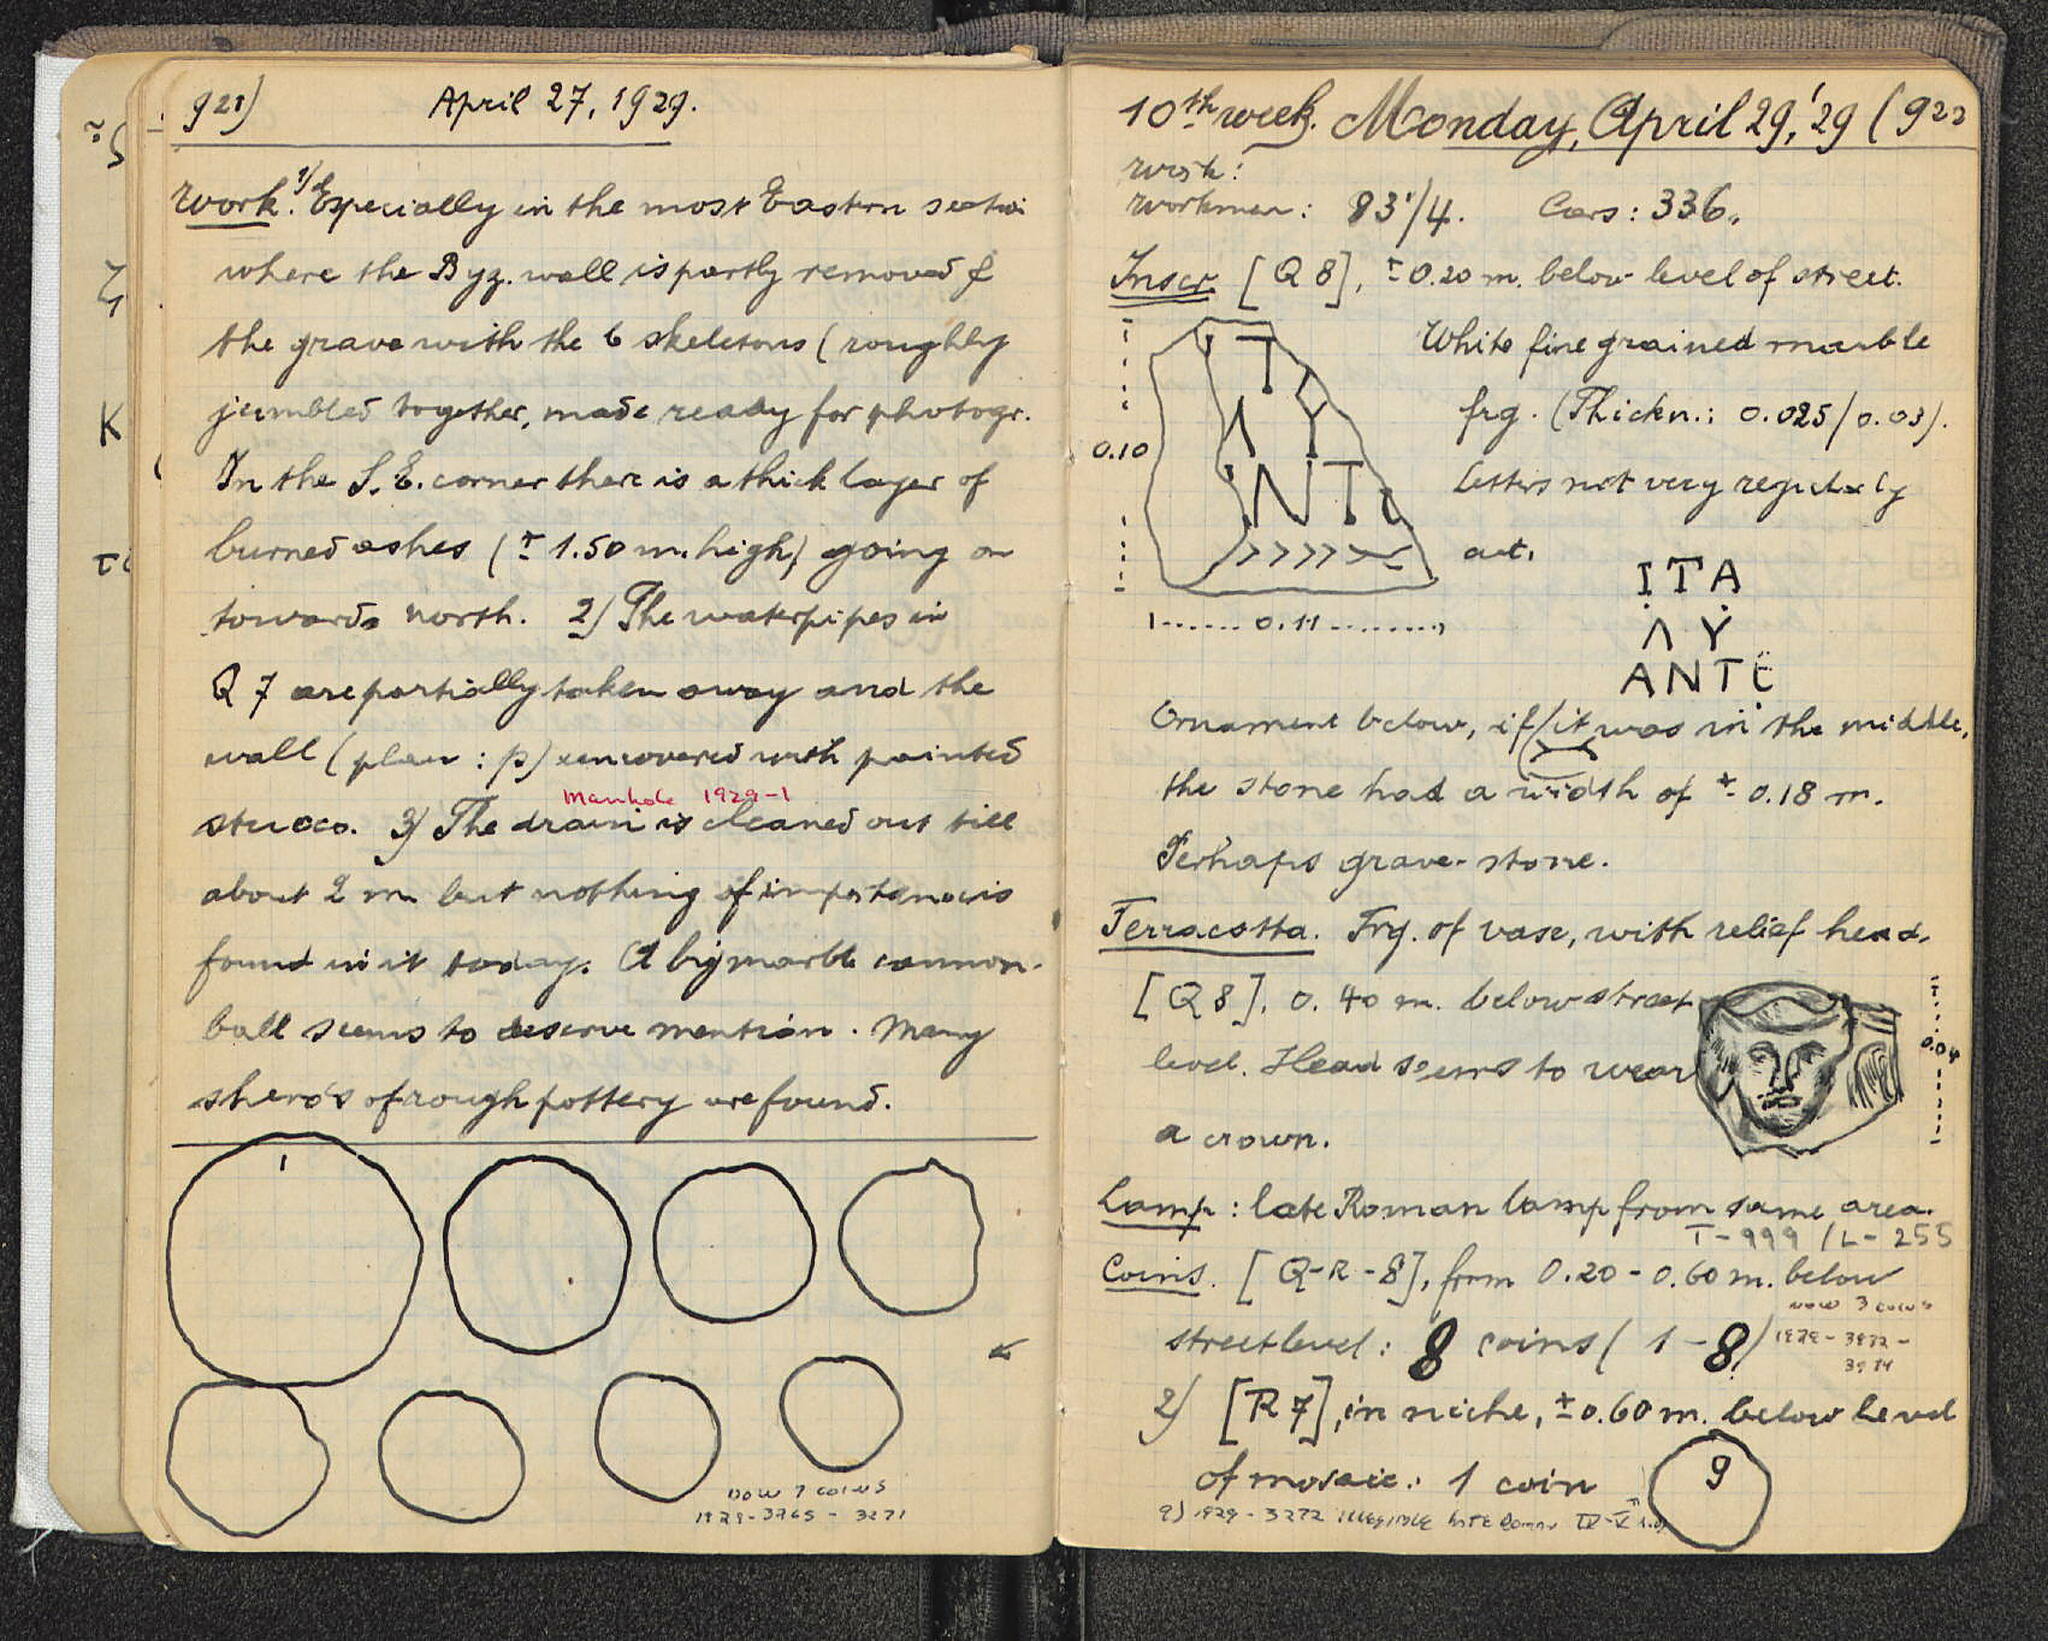 921)
April 27, 1929.
Work. 1) Especially in the most Eastern section
where the Byz. wall is partly removed &
the grave with the 6 skeletons (roughly
jumbled together, made ready for photogr.
In the S.E. corner there is a thick layer of
burned ashes (± 1.50 m. high) going on
towards north. 2) The waterpipes in
Q 7 are partially taken away and the
wall (plan : p) uncovered with painted
Manhole 1929-1
stucco. 3) The drain is cleaned out till
about 2 m but nothing of importance is
found in it today. A big marble cannon-
ball seems to deserve mention. Many
sherds of rough pottery are found.
1
now 7 coins
1929-3265 - 3271
10th week. Monday, April 29, '29 (922
Work:
Workmen: 83 1/4. Cars: 336.
Inscr. [Q 8], ± 0.20 m. below level of street.
White fine grained marble
frg. (Thickn.: 0.025/0.03).
0.10
Letters not very regularly
cut.
0.11
ITA
Λ Y
ANTE
Ornament below, if it was in the middle,
the stone had a width of ± 0.18 m.
Perhaps grave-stone.
Terracotta. Frg. of vase, with relief head.
[Q 8]. 0.40 m. below street
level. Head seems to wear
a crown.
0.04
Lamp: late Roman lamp from same area.
T-999 / L-255
Coins. [Q-R-8], from 0.20-0.60 m. below
now 3 coins
streetlevel: 8 coins (1-8)
2) [R 7], in niche, ± 0.60 m. below level
of mosaic: 1 coin
9
9) 1929-3272 illegible late Roman IV-V